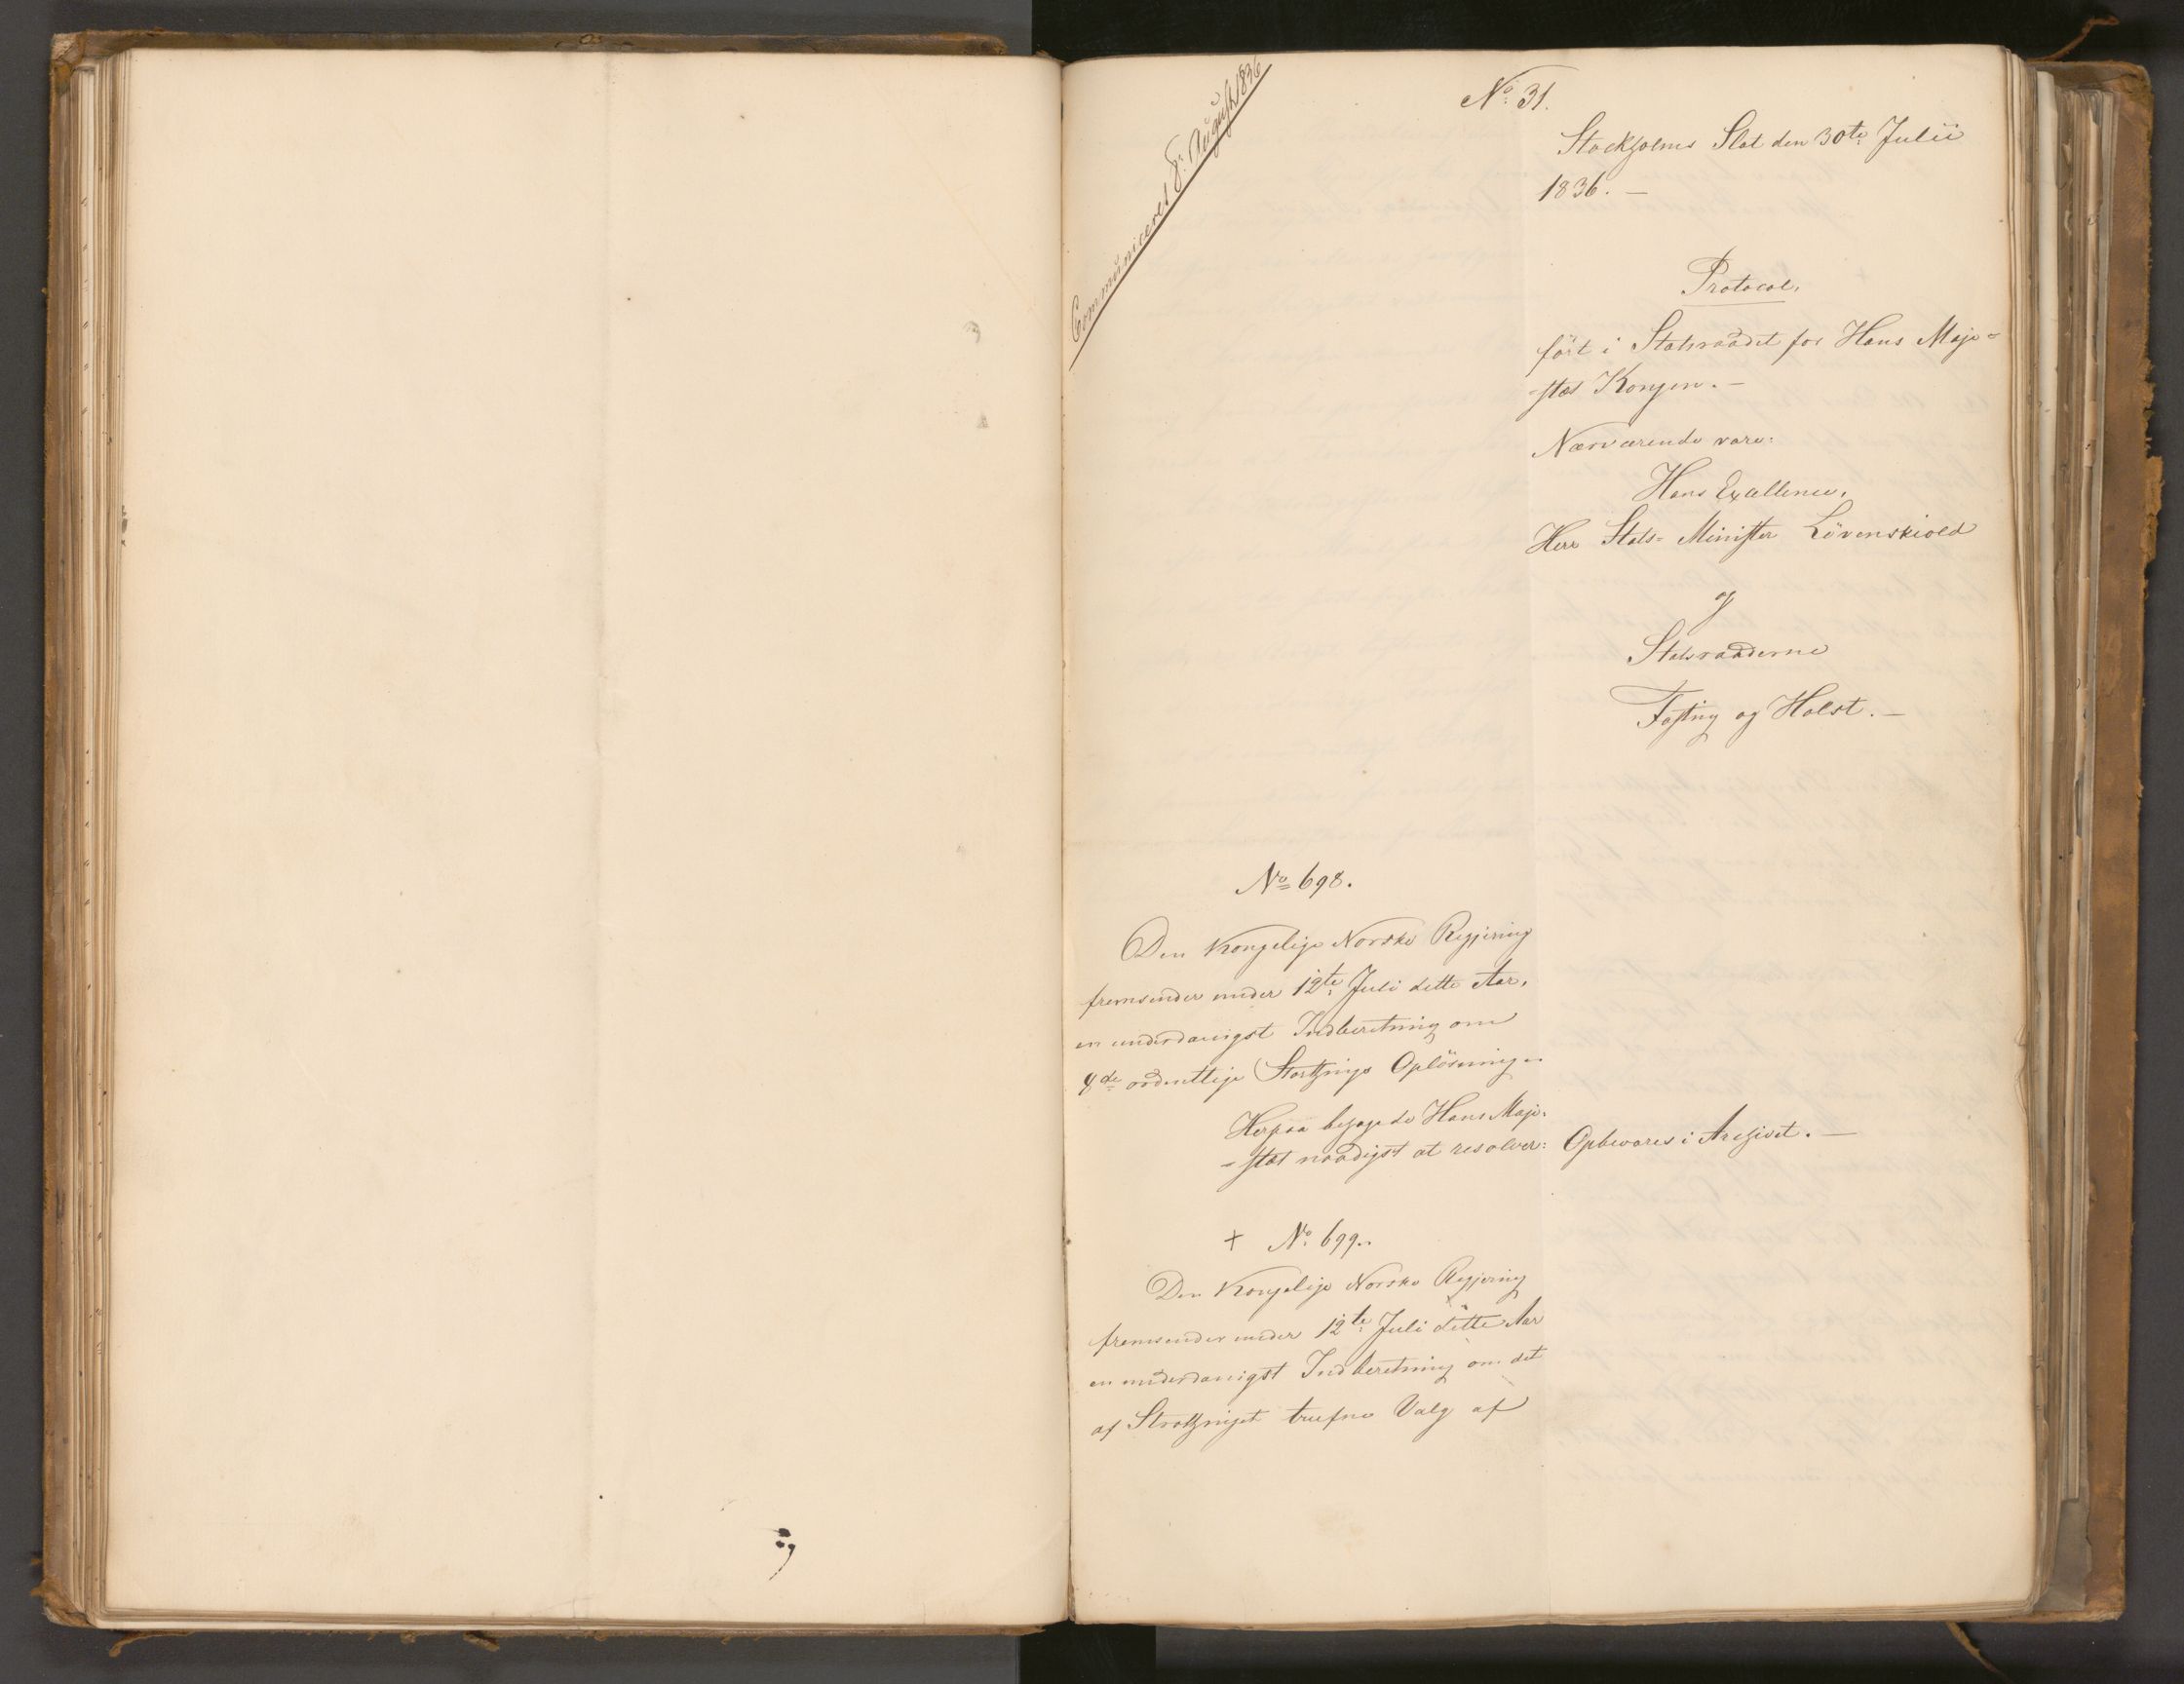 Communiceret 8: August 1836
No: 31.
Stockholms Slot den 30te Julii
1836. —
Protocol,
fört i Statsraadet for Hans Maje-
-stæt Kongen. —
Nærværende vare:
Hans Excellence,
Herr Stats-Minister Lövenskiold
og
Statsraaderne
Fasting og Holst. —
No 698.
Den Kongelige Norske Regjering
fremsender under 12te Juli dette Aar,
en underdanigst Indberetning om
8de ordentlige Storthings Oplösning.
Herpaa behagede Hans Maje-
-stæt naadigst at resolver: Opbevares i Archivet. —
+ No: 699.
Den Kongelige Norske Regjering
fremsender under 12te Juli dette Aar
en underdanigst Indberetning om det
af Storthinget trufne Valg af